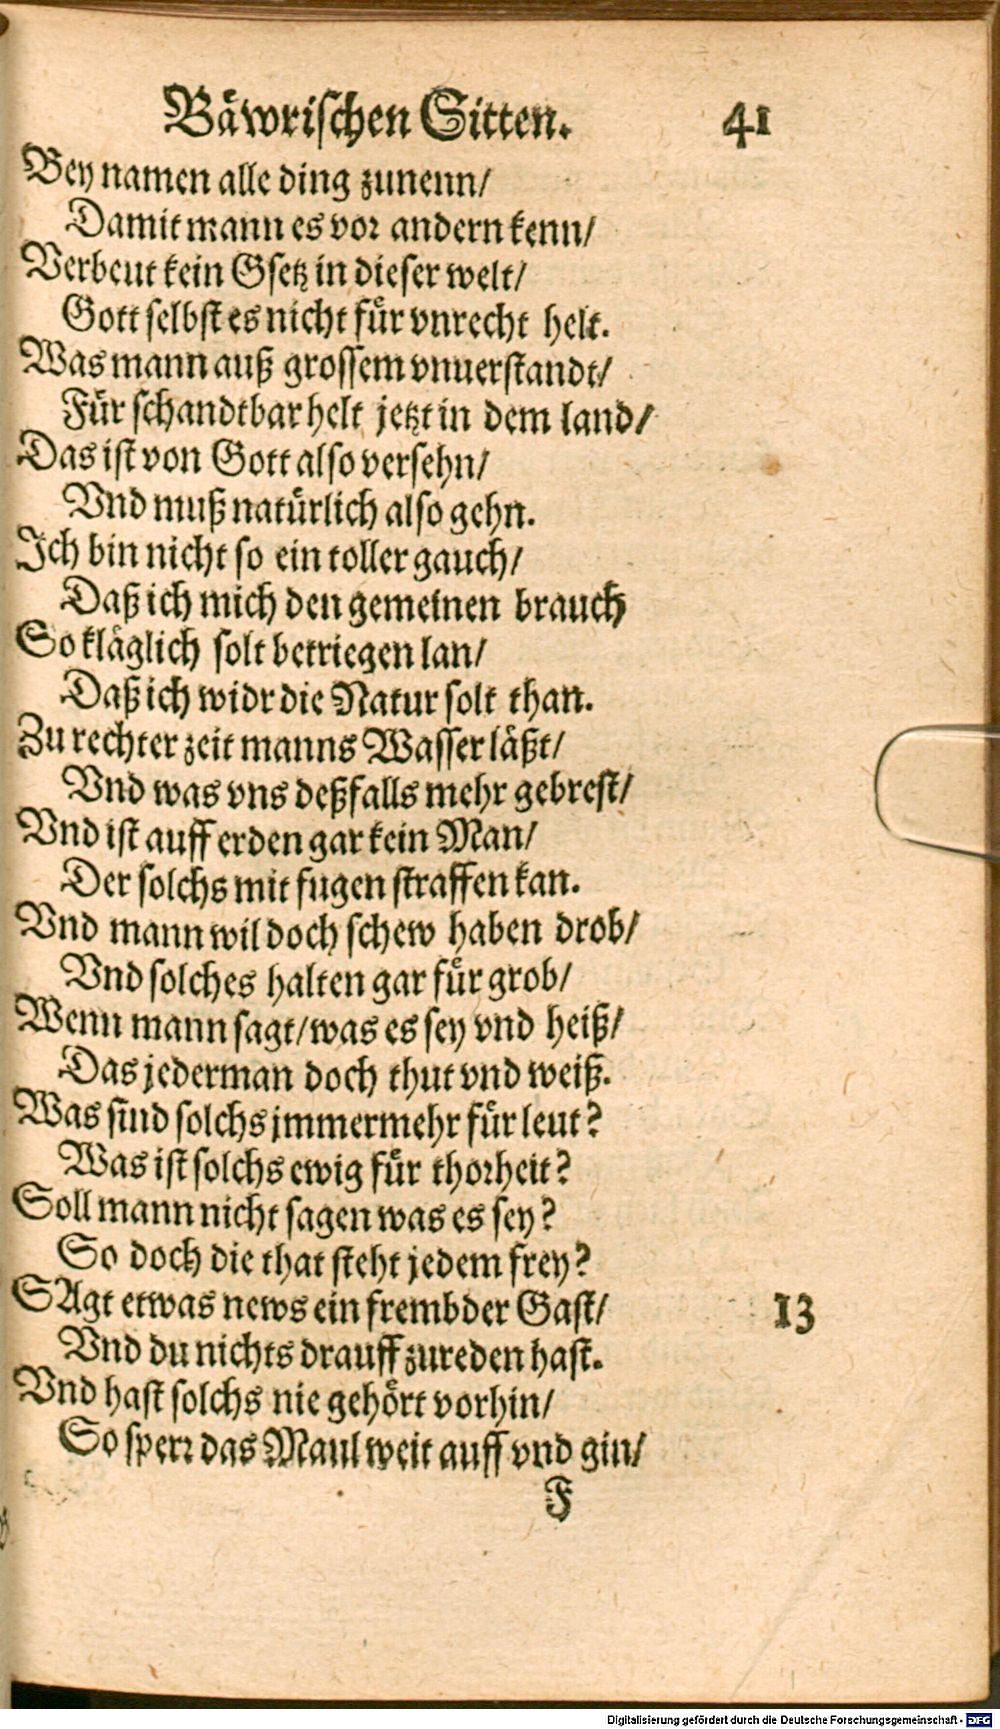 Bäwrischen Sitten. 41
Bey namen alle ding zunenn/
Damit mann es vor andern kenn/
Verbeut kein Gsetz in dieser welt/
Gott selbst es nicht für vnrecht helt.
Was mann auß grossem vnuerstandt/
Für schandtbar helt jetzt in dem land/
Das ist von Gott also versehn/
Vnd muß natürlich also gehn.
Ich bin nicht so ein toller gauch/
Daß ich mich den gemeinen brauch
So kläglich solt betriegen lan/
Daß ich widr die Natur solt than.
Zu rechter zeit manns Wasser läßt/
Vnd was vns deßfalls mehr gebrest/
Vnd ist auff erden gar kein Man/
Der solchs mit fugen straffen kan.
Vnd mann wil doch schew haben drob/
Vnd solches halten gar für grob/
Wenn mann sagt/was es sey vnd heiß/
Das jederman doch thut vnd weiß.
Was sind solchs jmmermehr für leut?
Was ist solchs ewig für thorheit?
Soll mann nicht sagen was es sey?
So doch die that steht jedem frey?
SAgt etwas news ein frembder Gast/ 13
Vnd du nichts drauff zureden hast.
Vnd hast solchs nie gehört vorhin/
So sperr das Maul weit auff vnd gin/
F
Digitalisierung gefördert durch die Deutsche Forschungsgemeinschaft - DFG